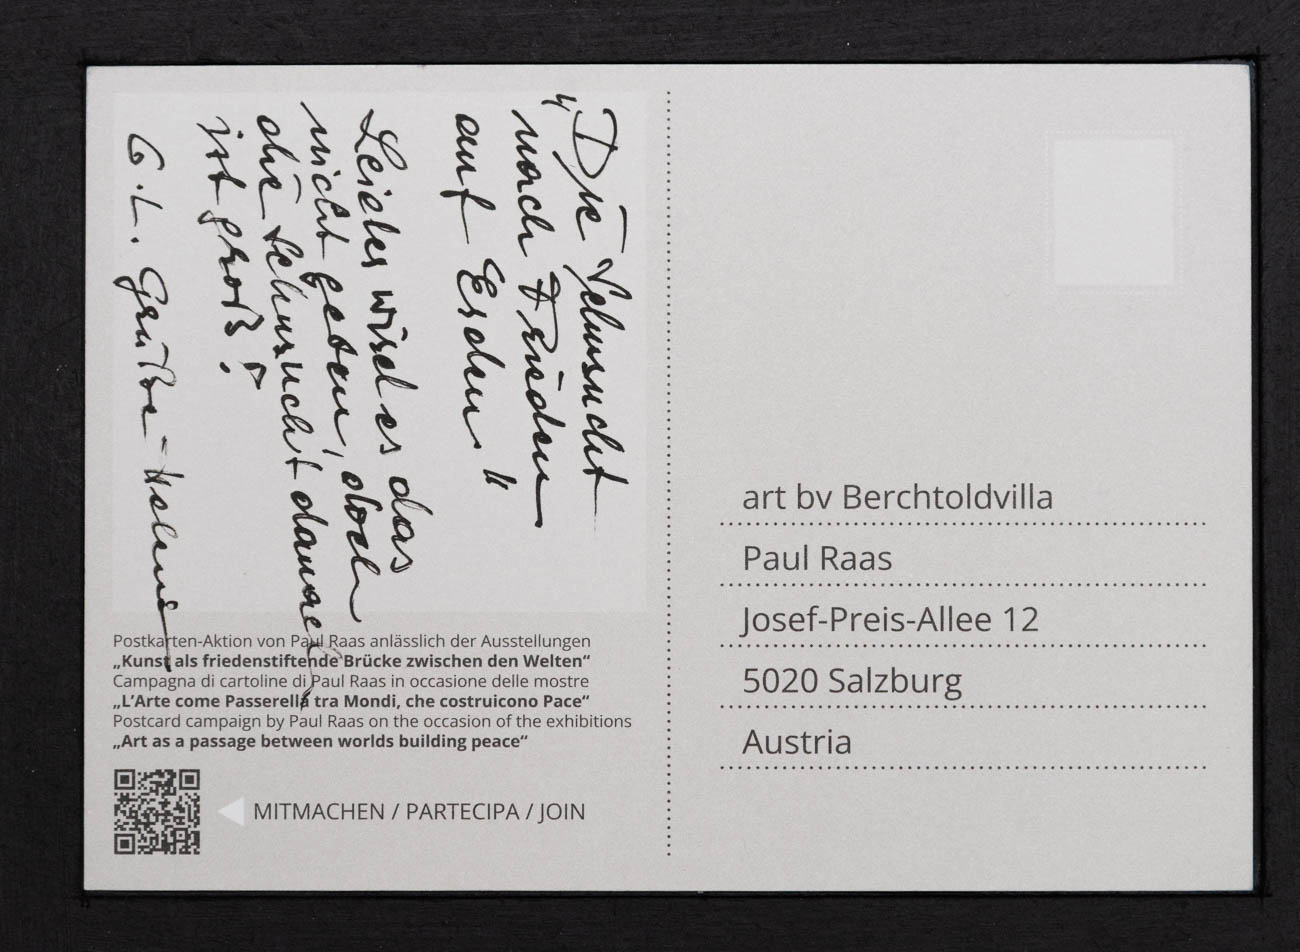 „Die Sehnsucht
nach Frieden
auf Erden“
Leider wird es das
nicht geben, doch
die Sehnsucht danach
ist groß!
G. L.
Postkarten-Aktion von Paul Raas anlässlich der Ausstellungen
„Kunst als friedenstiftende Brücke zwischen den Welten“
Campagna di cartoline di Paul Raas in occasione delle mostre
„L’Arte come Passerella tra Mondi, che costruicono Pace“
Postcard campaign by Paul Raas on the occasion of the exhibitions
„Art as a passage between worlds building peace“
MITMACHEN / PARTECIPA / JOIN
art bv Berchtoldvilla
Paul Raas
Josef-Preis-Allee 12
5020 Salzburg
Austria